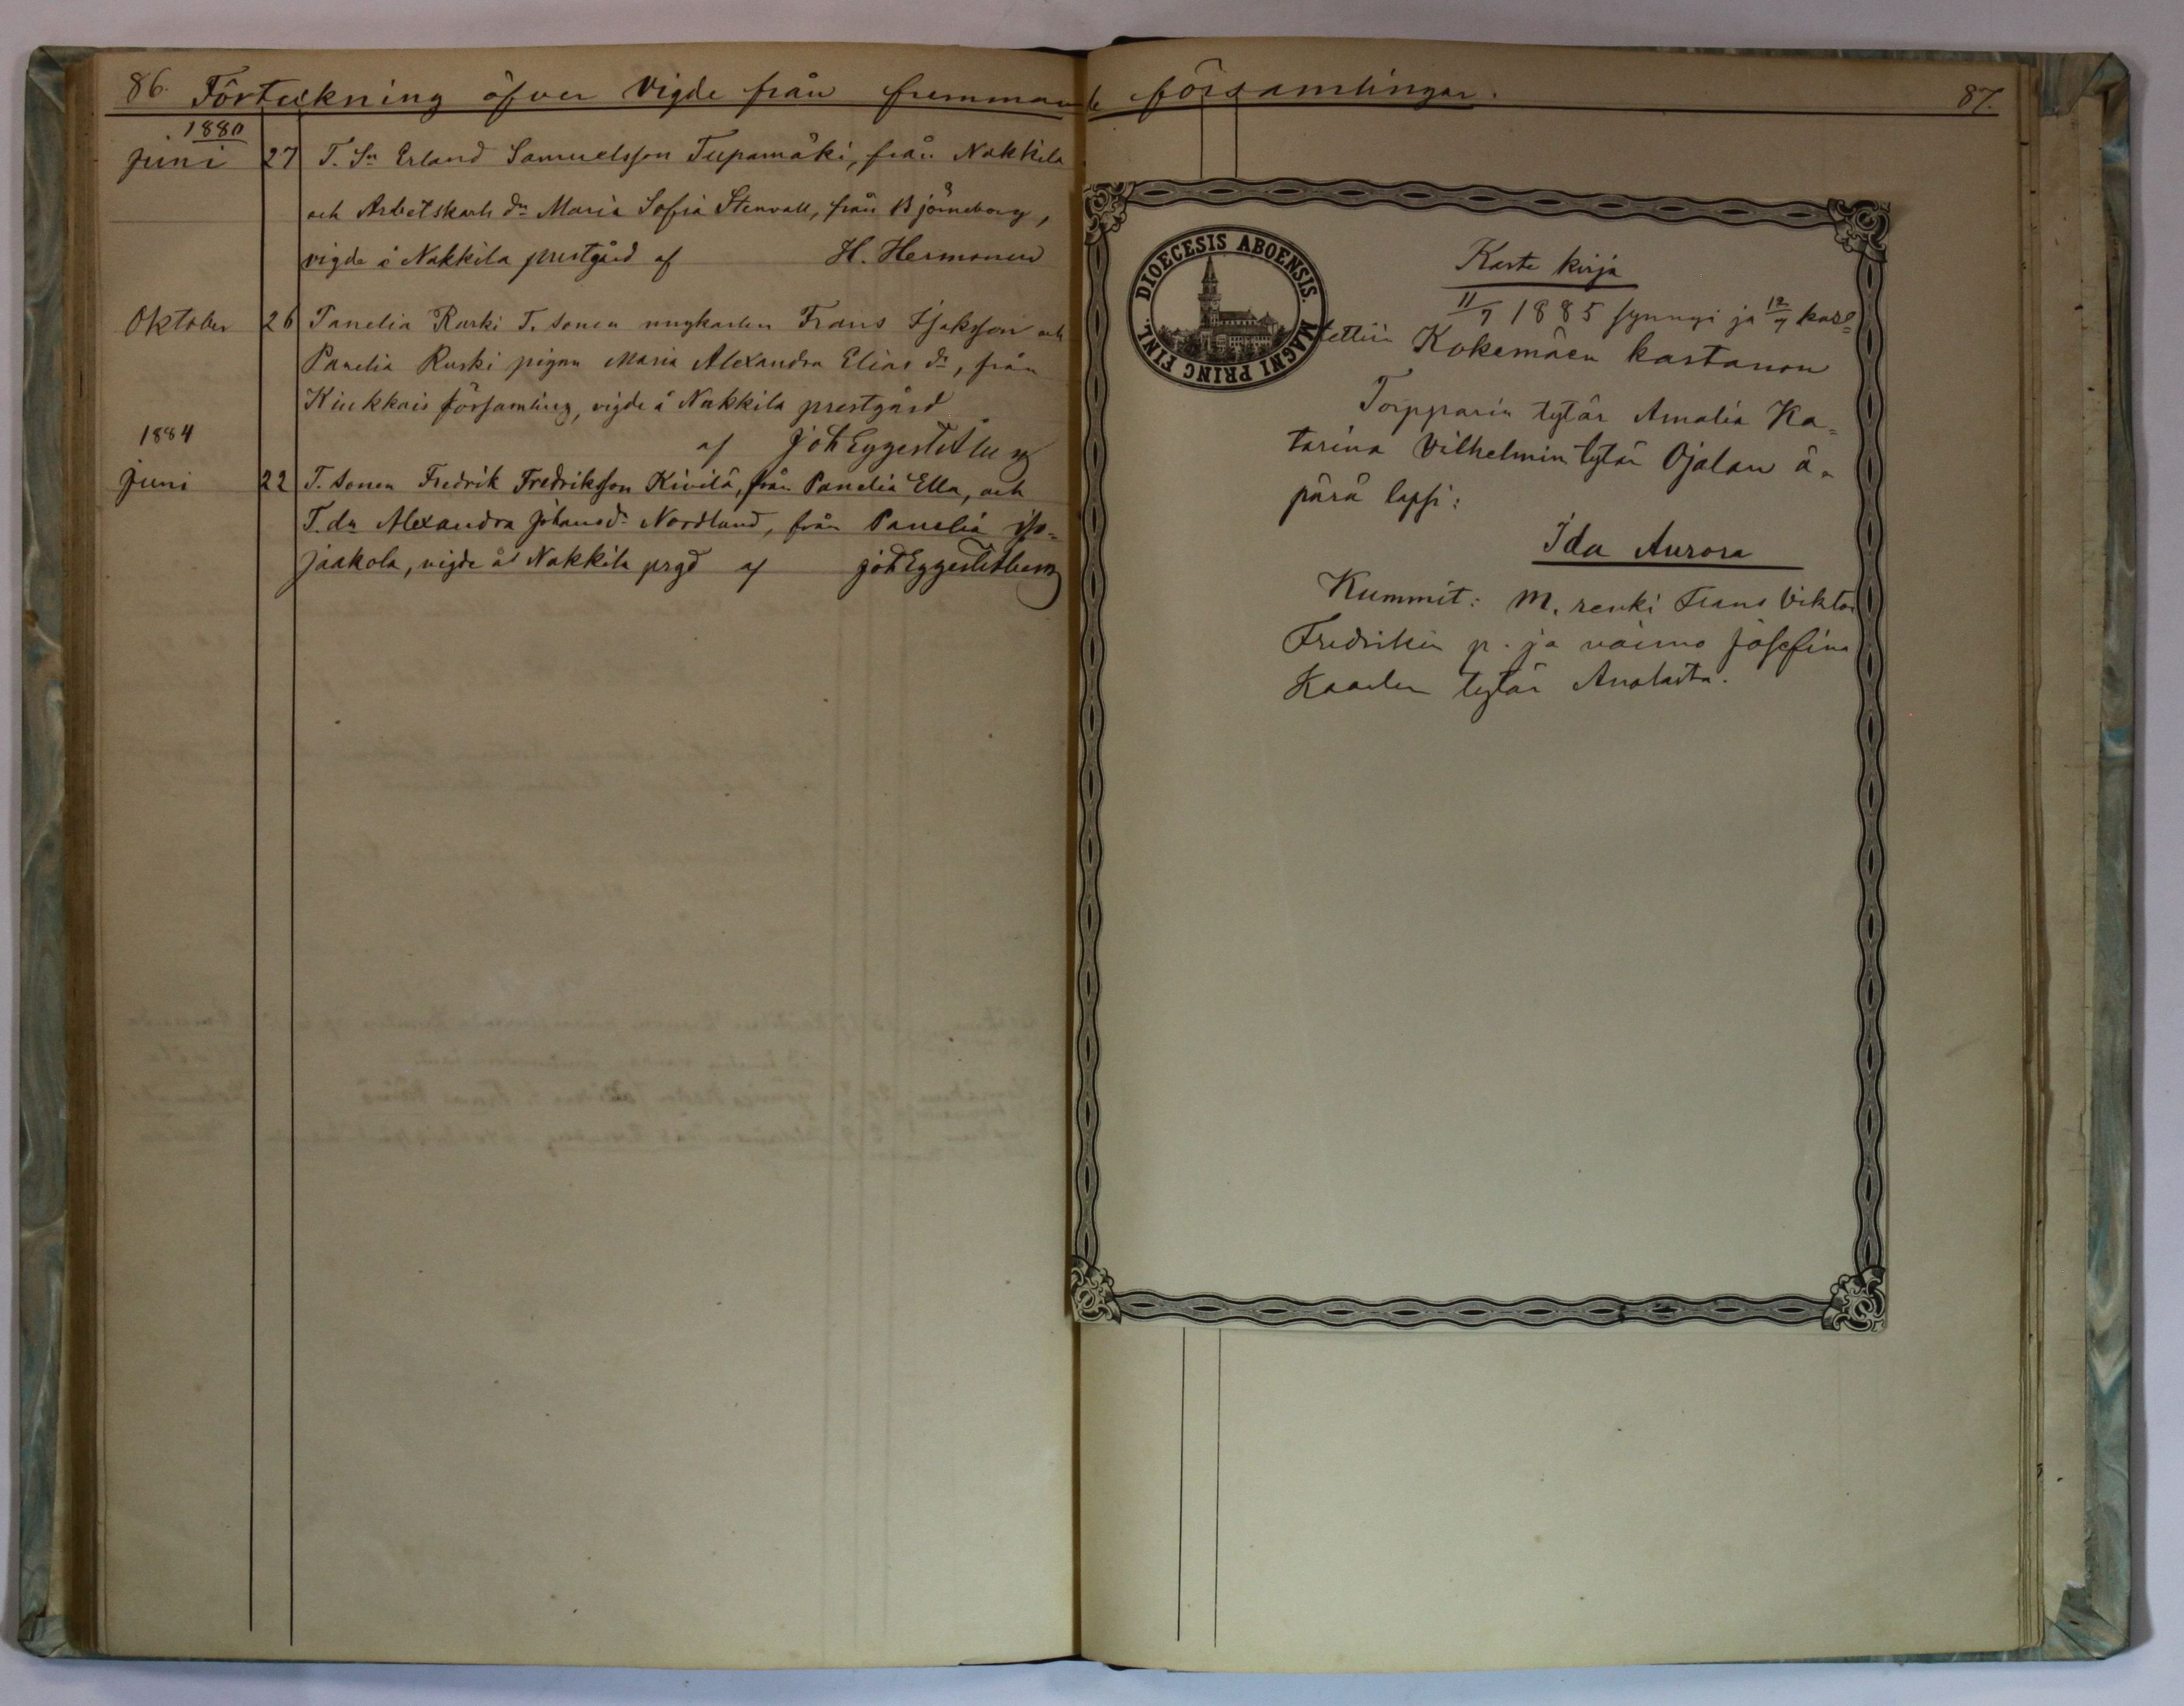 86. Förteckning öfver Vigde från fremmande församlingar. 87.
1880
Juni 27 T. Sn Erland Samuelsson Tupamäki, från Nakkila
och Arbetskarls dn Maria Sofia Stenvall, från Björneborg,
vigde å Nakkila prestgård af H. Hermonen
Oktober 26 Panelia Ruski T. sonen ungkarlen Frans Isaksson och
Panelia Ruski pigan Maria Alexandra Elias dr, från
Kiukkais församling, vigde å Nakkila prestgård
af Joh
1884
Juni 22 T. sonen Fredrik Fredriksson Kivilä, från Panelia Ella, och
T. dn Alexandra Johansdr Nordlund, från Panelia Iso=
jaakola, vigde å Nakkila prgd af Joh
DIOECESIS ABOENSIS MAGNI PRINC FINL.
Kaste kirja
11/7 1885 synnyi ja 12/7 kas=
tettiin Kokemäen kartanon
Torpparin tytär Amalia Ka=
tarina Vilhelmin tytär Ojalan ä=
pärä lapsi:
Ida Aurora
Kummit: M. renki Frans Viktor
Fredrikin p. ja vaimo Josefina
Kaarlen tytär Anolasta.